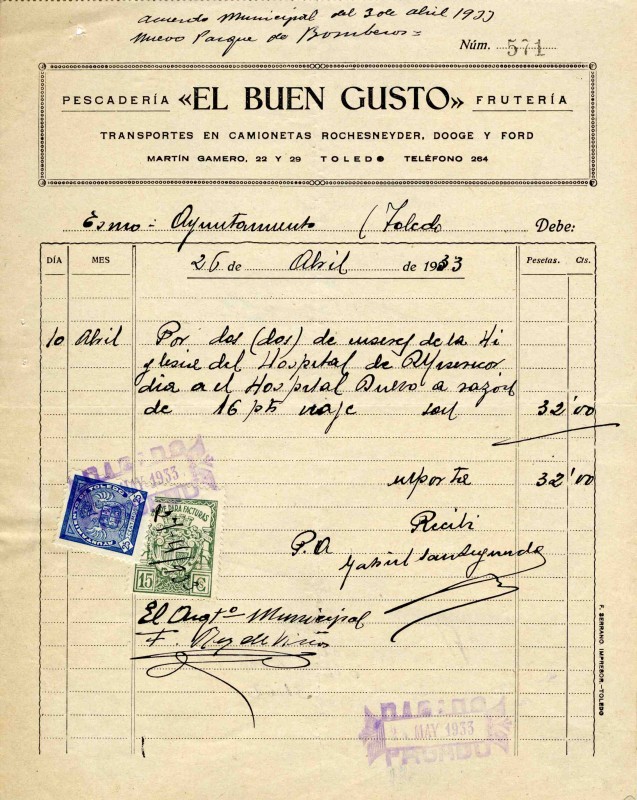 Acuerdo Municipal del 3 de abril 1933
Nuevo Parque de Bomberos=
Núm. 571
PESCADERÍA «EL BUEN GUSTO» FRUTERÍA
TRANSPORTES EN CAMIONETAS ROCHESNEYDER, DOOGE Y FORD
MARTÍN GAMERO, 22 Y 29 TOLEDO TELÉFONO 264
Exmo: Ayuntamiento (Toledo Debe:
DÍA MES 26 de Abril de 1933 Pesetas. Cts.
10 Abril Por dos (dos) de enseres de la
del Hospital de Misericor
dia a el Hospital Nuevo a razón
de 16 pts viaje son 32'00
importa 32'00
PAGADO
MAY 1933
PARA FACTURAS
15 C
Recibi
P.A
Gabriel
El Arqto Municipal
F.
F. SERRANO IMPRESOR.-TOLEDO
PAGADO
MAY 1933